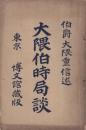 伯爵 大隈重信述
大隈伯時局談
東京 博文館蔵版